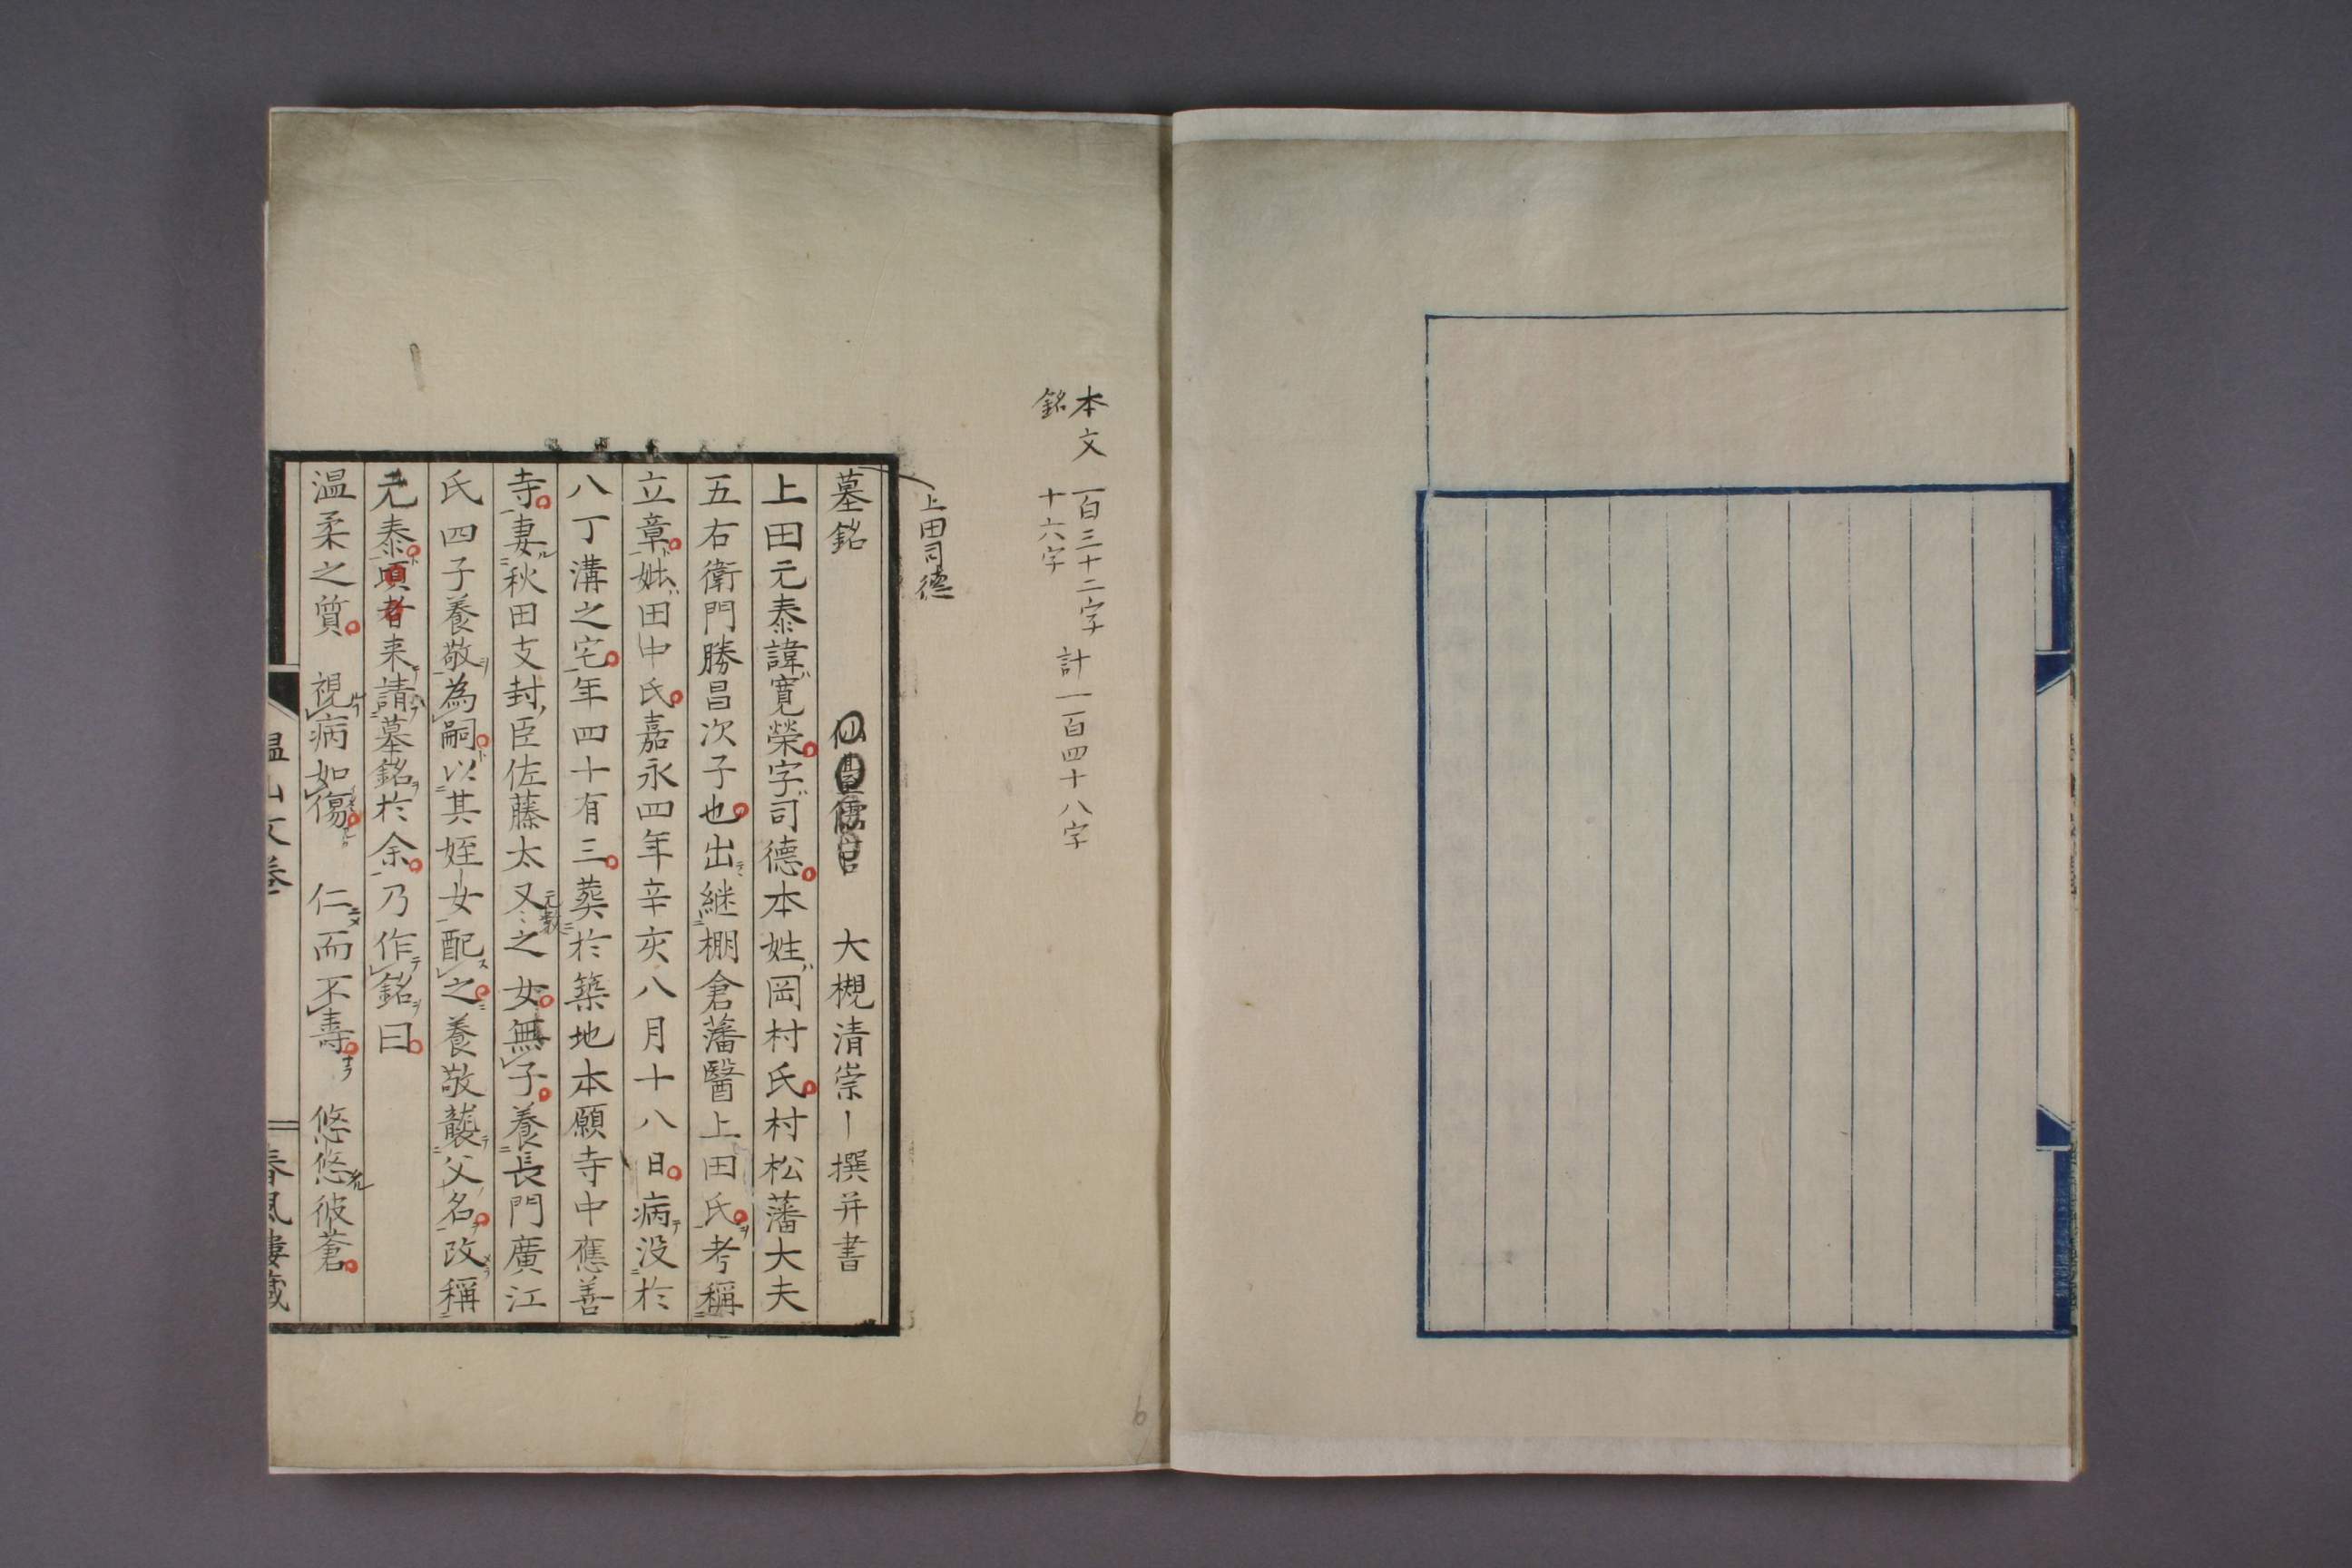 本文 一百三十二字 計一百四十八字
銘 十六字
上田司德
墓銘 大槻清崇撰并書
上田元泰諱寬榮字司德本姓岡村氏村松藩大夫
五右衛門勝昌次子也出継棚倉藩醫上田氏考稱
立章妣田中氏嘉永四年辛亥八月十八日病没於
八丁溝之宅年四十有三葬於築地本願寺中應善
寺妻秋田支封臣佐藤太又之女無子養長門廣江
氏四子養敬為嗣以其姪女配之養敬襲父名改稱
元泰頃者来請墓銘於余乃作銘曰
温柔之質 視病如傷 仁而不壽 悠悠彼蒼